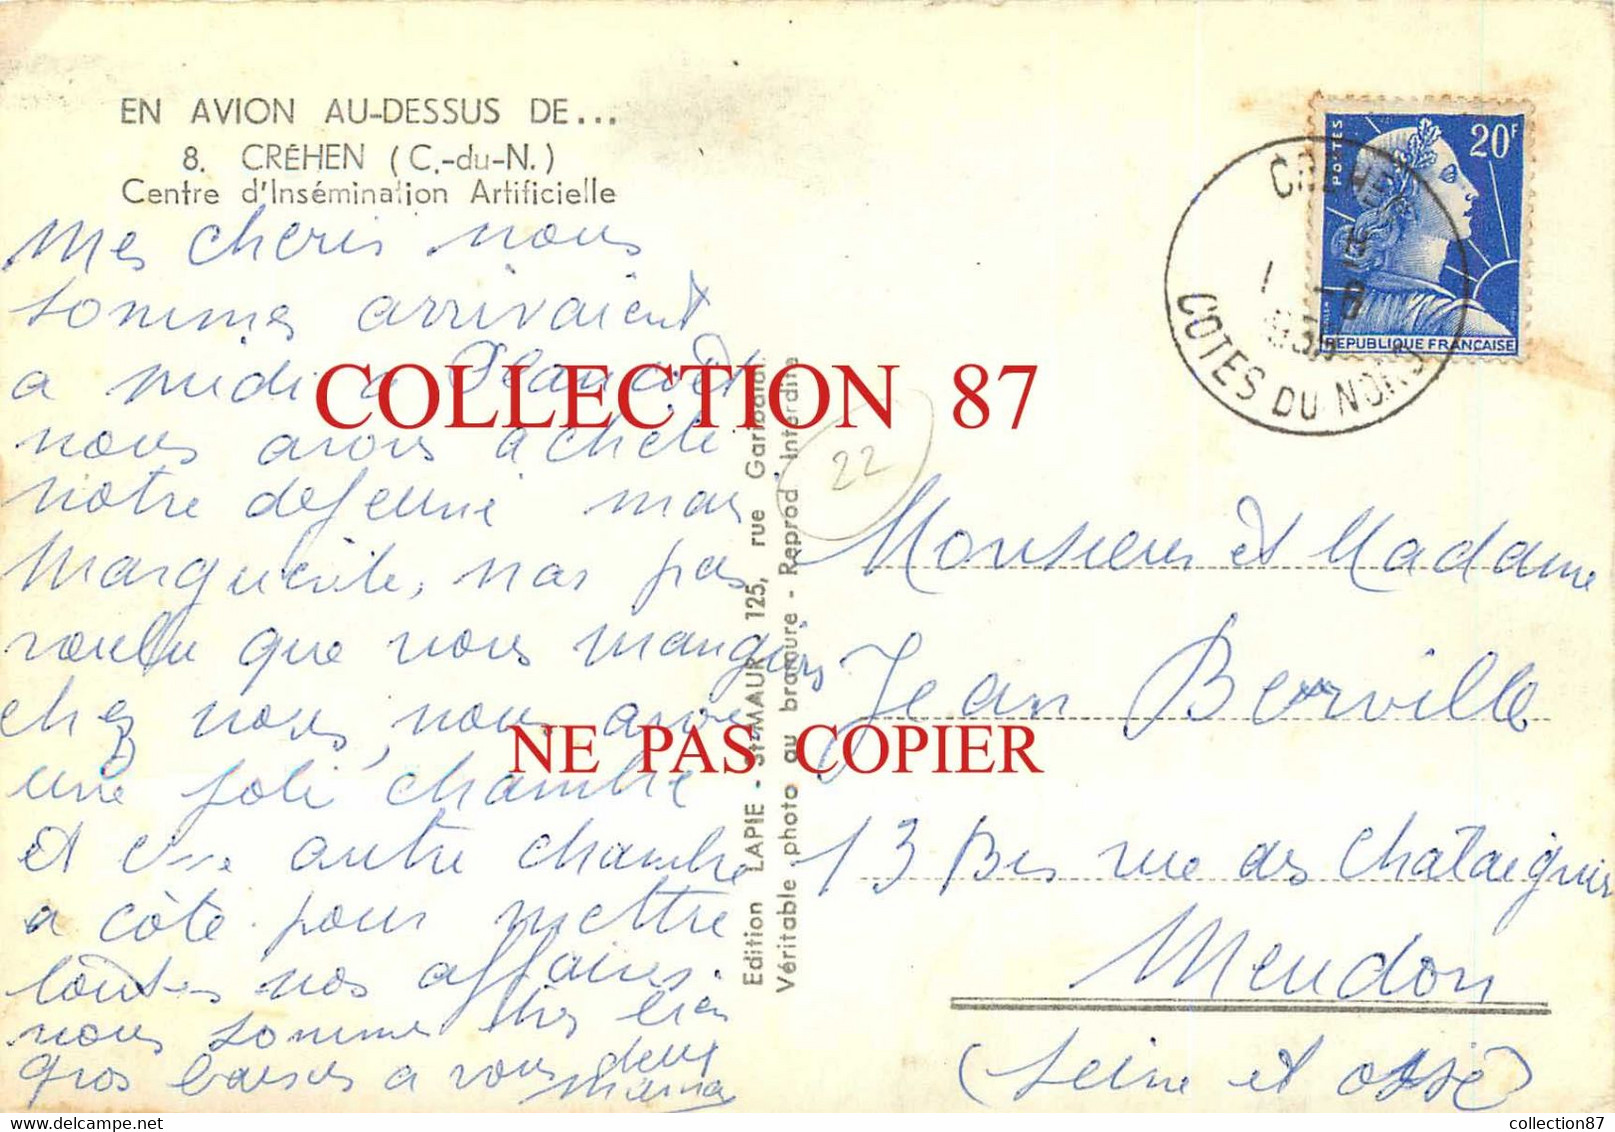 EN AVION AU-DESSUS DE...
8. CRÉHEN (C.-du-N.)
Centre d'Insémination Artificielle
Mes cheris nous
somme arrivaient
a midi a Plancoët
nous avons acheté
notre dejeuné mais
Marguerite, nas pas
voulu que nous mangions
chez nous, nous avons
une joli chambre
et une autre chambre
a côté pour mettre
toutes nos affaires.
nous somme très bien
gros baisers a vous deux
Mama
Edition LAPIE - St-MAUR 125, rue Garibaldi.
Véritable photo au bromure - Reprod Interdite
22
POSTES
20F
REPUBLIQUE FRANÇAISE
CREHEN
COTES DU NORD
Monsieur et Madame
Jean Berville
13 Bis rue des Chataigniers
Meudon
(Seine et Osse)
COLLECTION 87
NE PAS COPIER
collection87